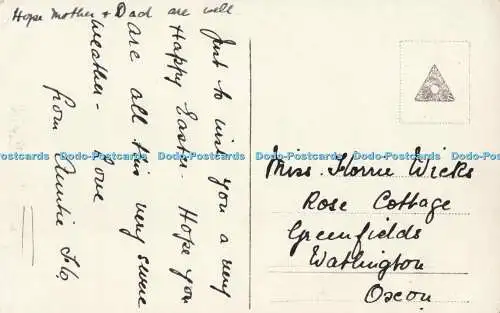 Hope Mother + Dad are well
Just to wish you a very
Happy Easter Hope you
are all this very severe
weather - Love
from Auntie Flo.
Miss. Florrie Wicks
Rose Cottage
Greenfields
Watlington
Oxon.
Dodo-Postcards Dodo-Postcards Dodo-Postcards Dodo-Postcards Dodo-Postcards